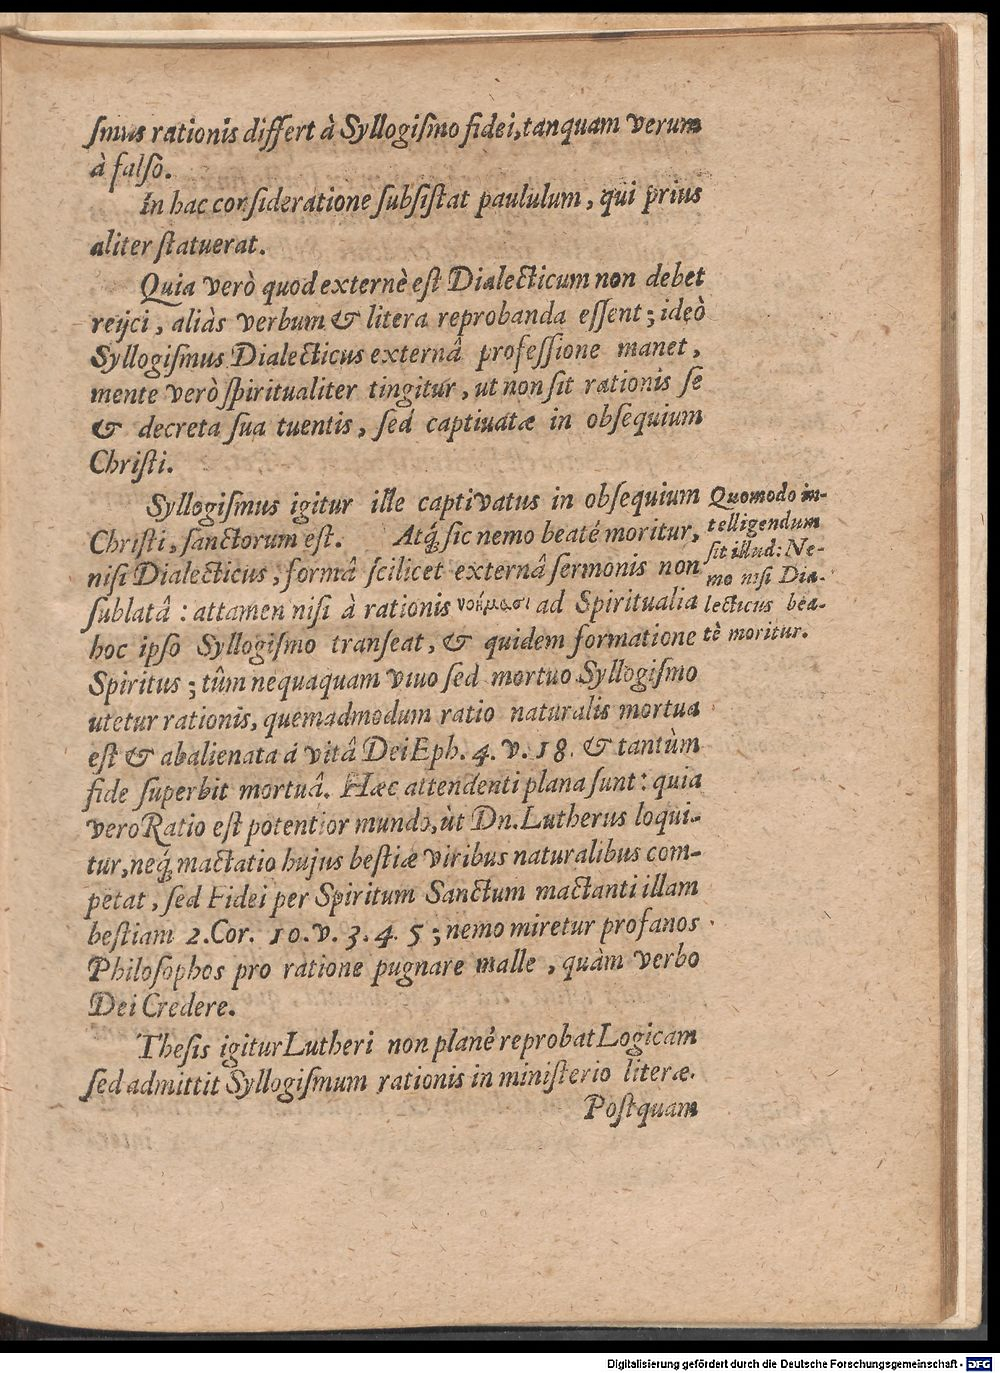 ſmus rationis differt à Syllogiſmo fidei, tanquam verum
à falſo.
In hac conſideratione ſubſiſtat paululum, qui prius
aliter ſtatuerat.
Quia verò quod externè eſt Dialecticum non debet
reijci, aliàs verbum & litera reprobanda eſſent; ideò
Syllogiſmus Dialecticus externâ profeſſione manet,
mente verò ſpiritualiter tingitur, ut non ſit rationis ſe
& decreta ſua tuentis, ſed captiuatæ in obſequium
Chriſti.
Syllogiſmus igitur ille captivatus in obſequium
Chriſti, ſanctorum eſt. Atq́; ſic nemo beaté moritur,
niſi Dialecticus, formâ ſcilicet externâ ſermonis non
ſublatâ: attamen niſi à rationis νοήμασι ad Spiritualia
hoc ipſo Syllogiſmo tranſeat, & quidem formatione
Spiritus; tûm nequaquam viuo ſed mortuo Syllogiſmo
utetur rationis, quemadmodum ratio naturalis mortua
eſt & abalienata á vitâ Dei Eph. 4. v. 18. & tantùm
fide ſuperbit mortuâ. Hæc attendenti plana ſunt: quia
vero Ratio eſt potentior mundo, ùt Dn. Lutherus loqui-
tur, neq́; mactatio hujus beſtiæ viribus naturalibus com-
petat, ſed Fidei per Spiritum Sanctum mactanti illam
beſtiam 2. Cor. 10. v. 3. 4. 5; nemo miretur profanos
Philoſophos pro ratione pugnare malle, quàm verbo
Dei Credere.
Theſis igitur Lutheri non plané reprobat Logicam
ſed admittit Syllogiſmum rationis in miniſterio literæ.
Poſtquam
Quomodo in-
telligendum
ſit illud: Ne-
mo niſi Dia-
lecticus bea-
tè moritur.
Digitalisierung gefördert durch die Deutsche Forschungsgemeinschaft - DFG